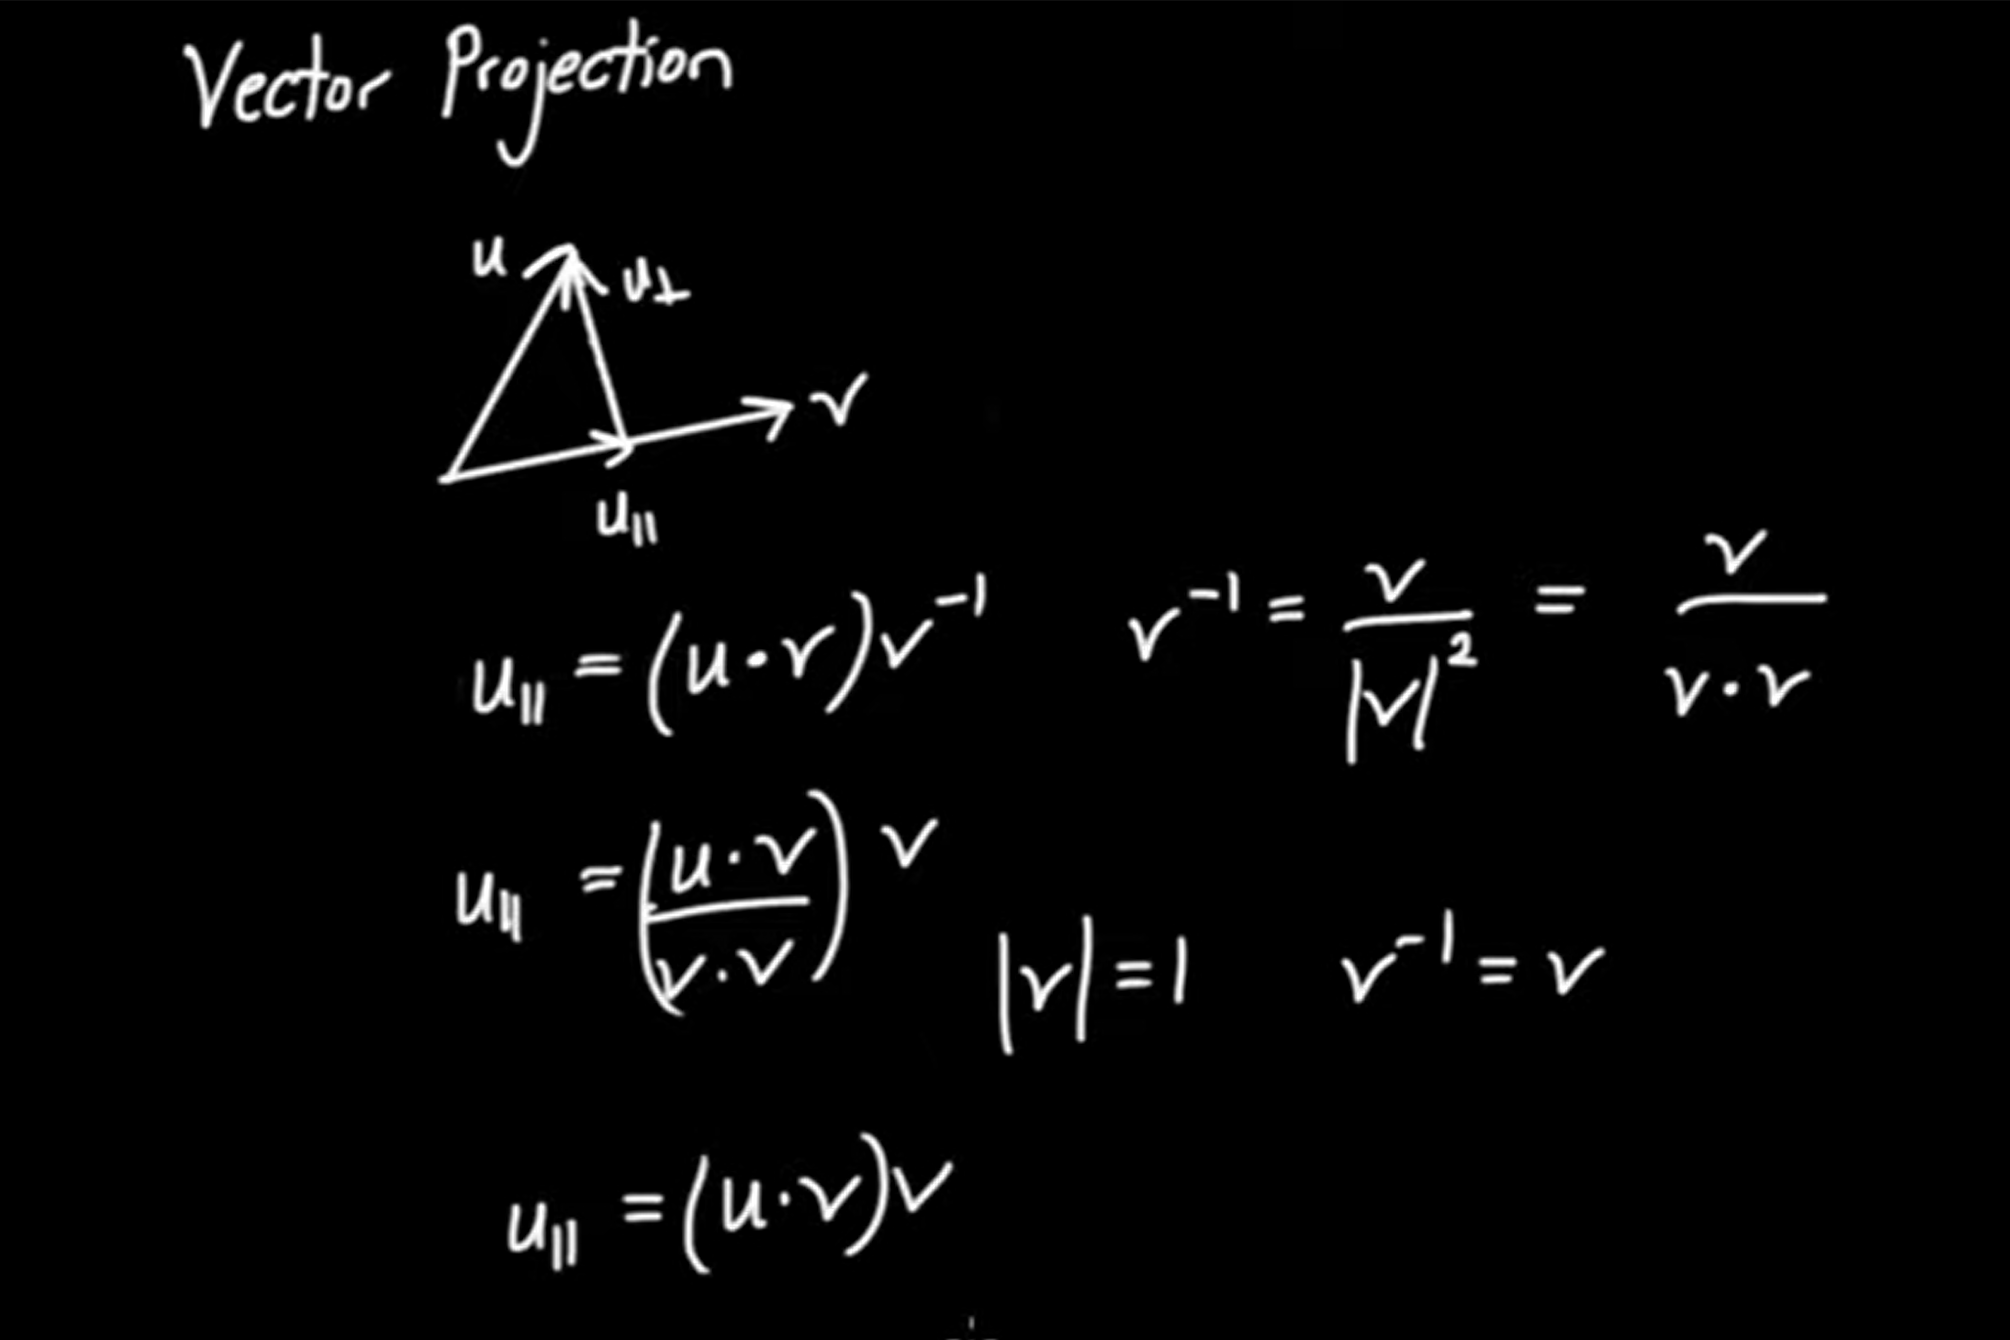 Vector Projection
u u⊥
v
u∥
u∥ = (u·v)v⁻¹ v⁻¹ = v/|v|² = v/(v·v)
u∥ = ((u·v)/(v·v)) v
|v| = 1 v⁻¹ = v
u∥ = (u·v)v